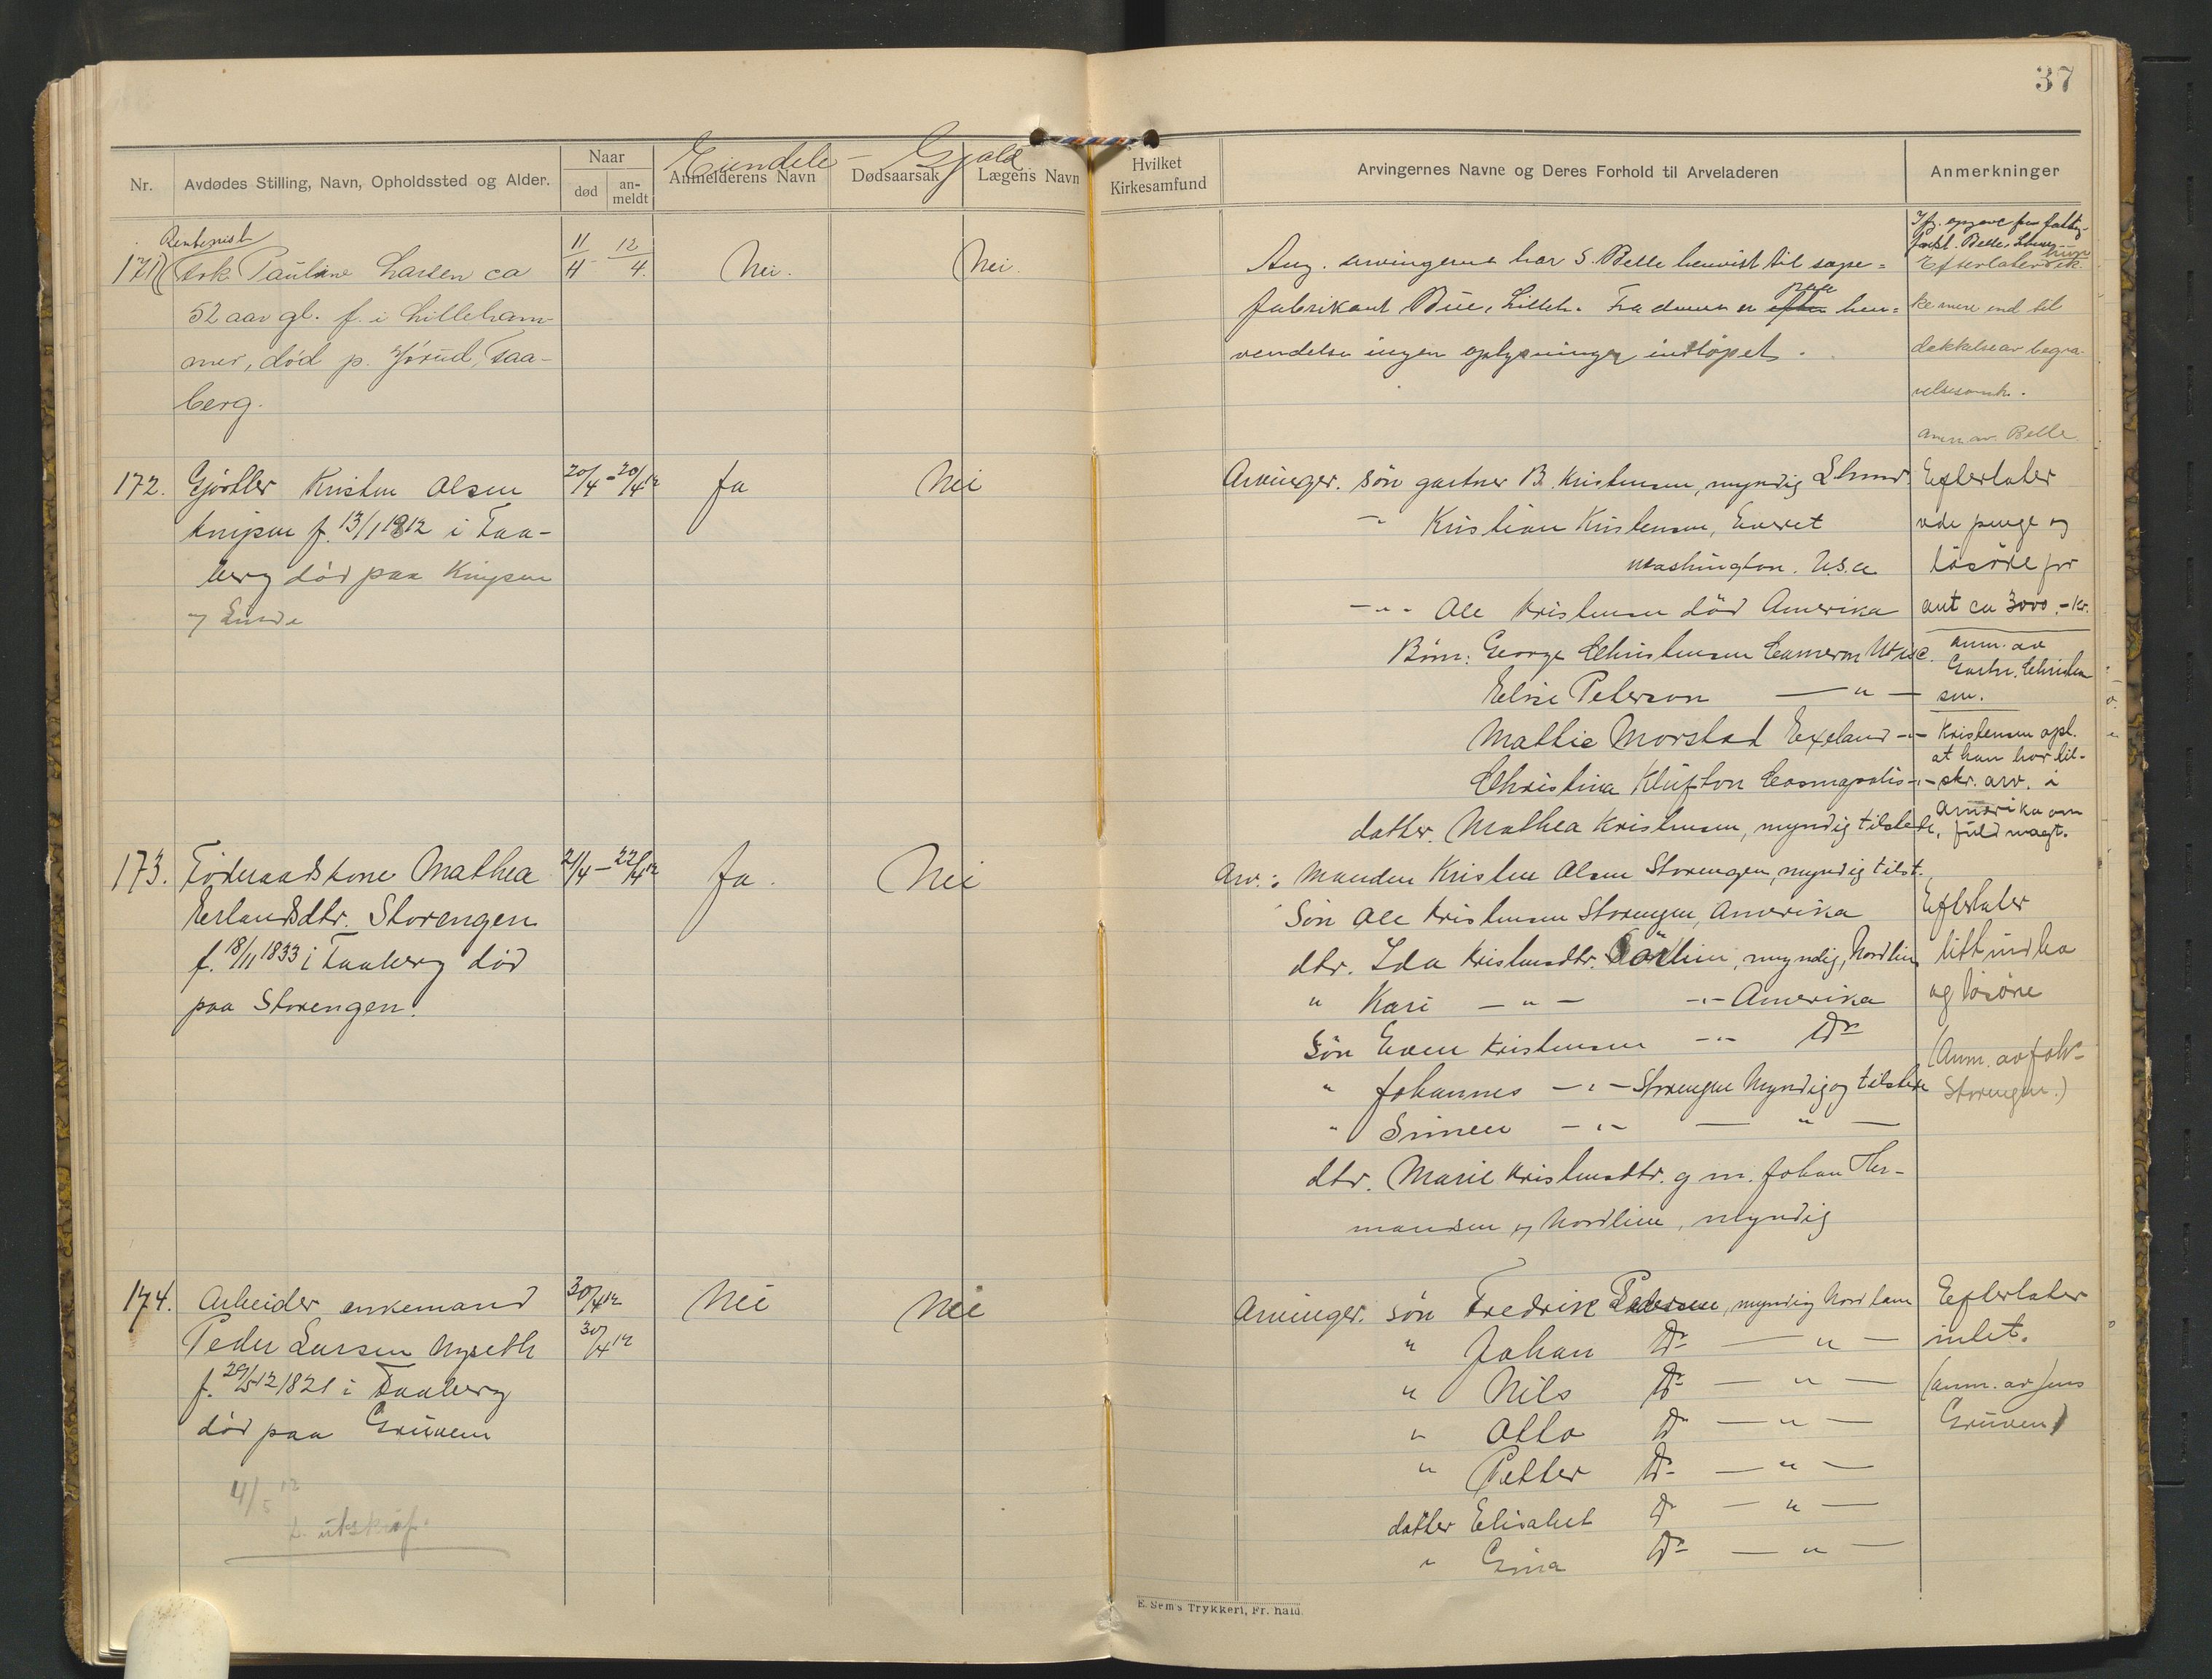 37
Nr.
Avdødes Stilling, Navn, Opholdssted og Alder.
Naar
død
an-
meldt
Anmelderens Navn
Dødsaarsak
Lægens Navn
Hvilket
Kirkesamfund
Arvingernes Navne og Deres Forhold til Arveladeren
Anmerkninger
Eiendele - Gjæld
171
Pauline Larsen ca
52 aar gl. f. i Lilleham-
mer, død p. Jørud, Faa-
berg.
11/4 12/4.
Nei.
Nei.
Ang. arvingerne har S. Belle henvist til sæpe=
fabrikant Bue, Lilleh. Fra denne er paa hen=
vendelse ingen oplysninger indløpet.
Efterlater ik-
ke mere end til
dækkelse av begra-
velsesomk.
anm. av Belle.
172.
Kristen Olsen
Knipen f. 13/1 1812 i Faa-
berg død paa Knipen
20/4 - 20/4 12
Ja
Nei
Arvinger. søn gartner B. Kristensen, myndig
Kristian Kristensen, Everet
Washington. U.S.a
-"- Ole Kristensen død Amerika
Børn: George Christensen Cameron
Elsie Peterson — " —
Mathie Morstad Exeland -"-
Christina Klufton Cosmopolis -"-
datter. Mathea Kristensen, myndig tilstede,
Efterlater
ca 3000.- kr.
anm. av
Gartn. Christen
sen.
Kristensen opl.
at han har til-
skr. arv. i
Amerika om
fuldmagt.
173.
Føderaadskone Mathea
Erlandsdtr. Storengen
f. 18/11 1833 i Faaberg død
paa Storengen.
21/4 - 22/4 12
Ja.
Nei
Arv.: Manden Kristen Olsen Storengen, myndig tilst.
Søn Ole Kristensen Storengen, Amerika
dtr. Ida Kristensdtr. myndig, Nordlien
" Kari — " — -"- Amerika
Søn Even Kristensen -"- Do
" Johannes -"- Storengen Myndig og tilstede
" Simen -"- — " —
dtr. Marie Kristensdtr. g. m. Johan Her-
mansen, Nordlien, myndig
Efterlater
litt indbo
og løsøre
(Anm. av Joh-
Storengen.)
174.
Arbeider enkemand
Peder Larsen Nyseth
1821 i Faaberg
død paa Gruven
30/4 12
30/4 12
Nei
Nei
Arvinger. søn Fredrik Pedersen, myndig
" Johan Do — " —
" Nils Do — " —
" Otto Do — " —
" Petter Do — " —
datter Elisabet Do — " —
" Gina Do — " —
Efterlater
intet.
(anm. av Jens
Gruven)
4/5 12
utskrift.
E. Sem's Trykkeri, Fr. hald.